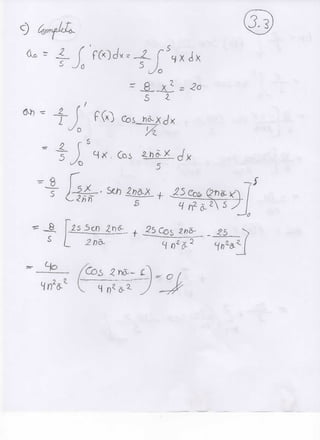 c) Completa
3.3
a₀ = 2/5 ∫₀ f(x)dx = 2/5 ∫₀⁵ 4x dx
= 8/5 x²/2 = 20
an = 2/1 ∫₀ f(x) cos nax dx
= 2/5 ∫₀⁵ 4x. Cos 2nax/5 dx
= 8/5 [5x/2nπ . Sen 2nax/5 + 25 Cos (2nax/5)/4n²a²]₀⁵
= 8/5 [25 Sen 2na/2na + 25 Cos 2na/4n²a² - 25/4n²a²]
= 40/4n²a² (Cos 2na - 1/4n²a²) = 0